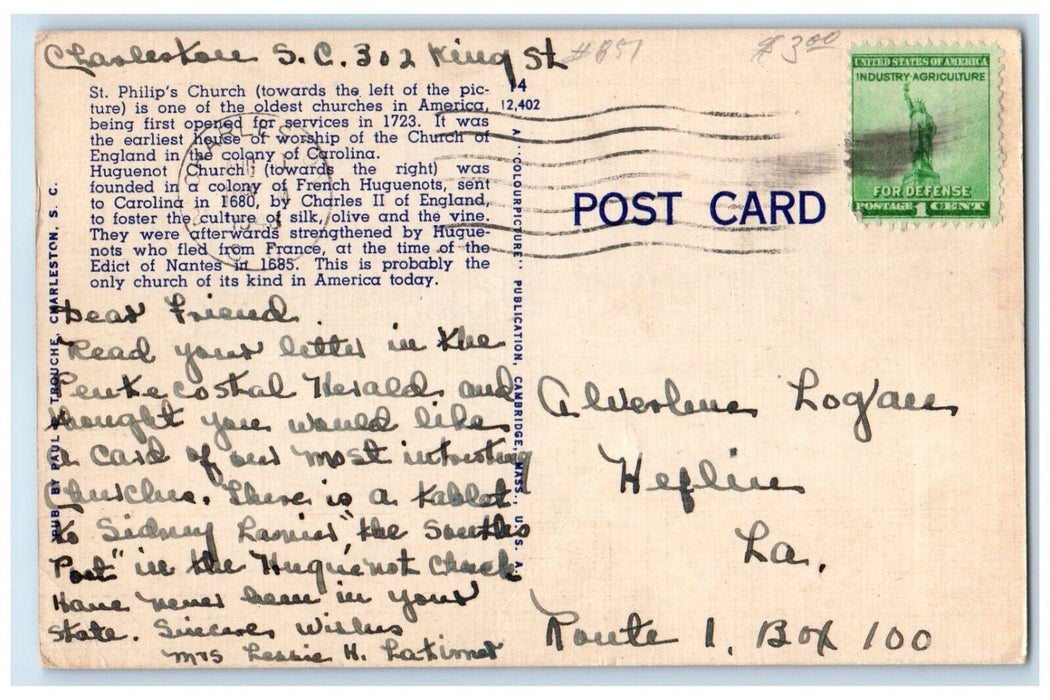 Charleston S.C. 302 King St
#B51
$3.00
St. Philip's Church (towards the left of the pic-
ture) is one of the oldest churches in America,
being first opened for services in 1723. It was
the earliest house of worship of the Church of
England in the colony of Carolina.
Huguenot Church (towards the right) was
founded in a colony of French Huguenots, sent
to Carolina in 1680, by Charles II of England,
to foster the culture of silk, olive and the vine.
They were afterwards strengthened by Hugue-
nots who fled from France, at the time of the
Edict of Nantes in 1685. This is probably the
only church of its kind in America today.
14
12,402
PUB BY PAUL E. TROUCHE, CHARLESTON, S. C.
A "COLOURPICTURE" PUBLICATION, CAMBRIDGE, MASS., U. S. A.
POST CARD
UNITED STATES OF AMERICA
INDUSTRY·AGRICULTURE
FOR DEFENSE
POSTAGE 1 CENT
Dear Friend.
Read your letter in the
Pentecostal Herald, and
thought you would like
a card of our most intresting
Churches. There is a tablet
to Sidney Lanier, "the Souths
Poet" in the Huguenot Church
Have never been in your
state. Sincere Wishes
Mrs Lessie H. Latimer
Alverline Logan
Heflin
La.
Route 1, Box 100